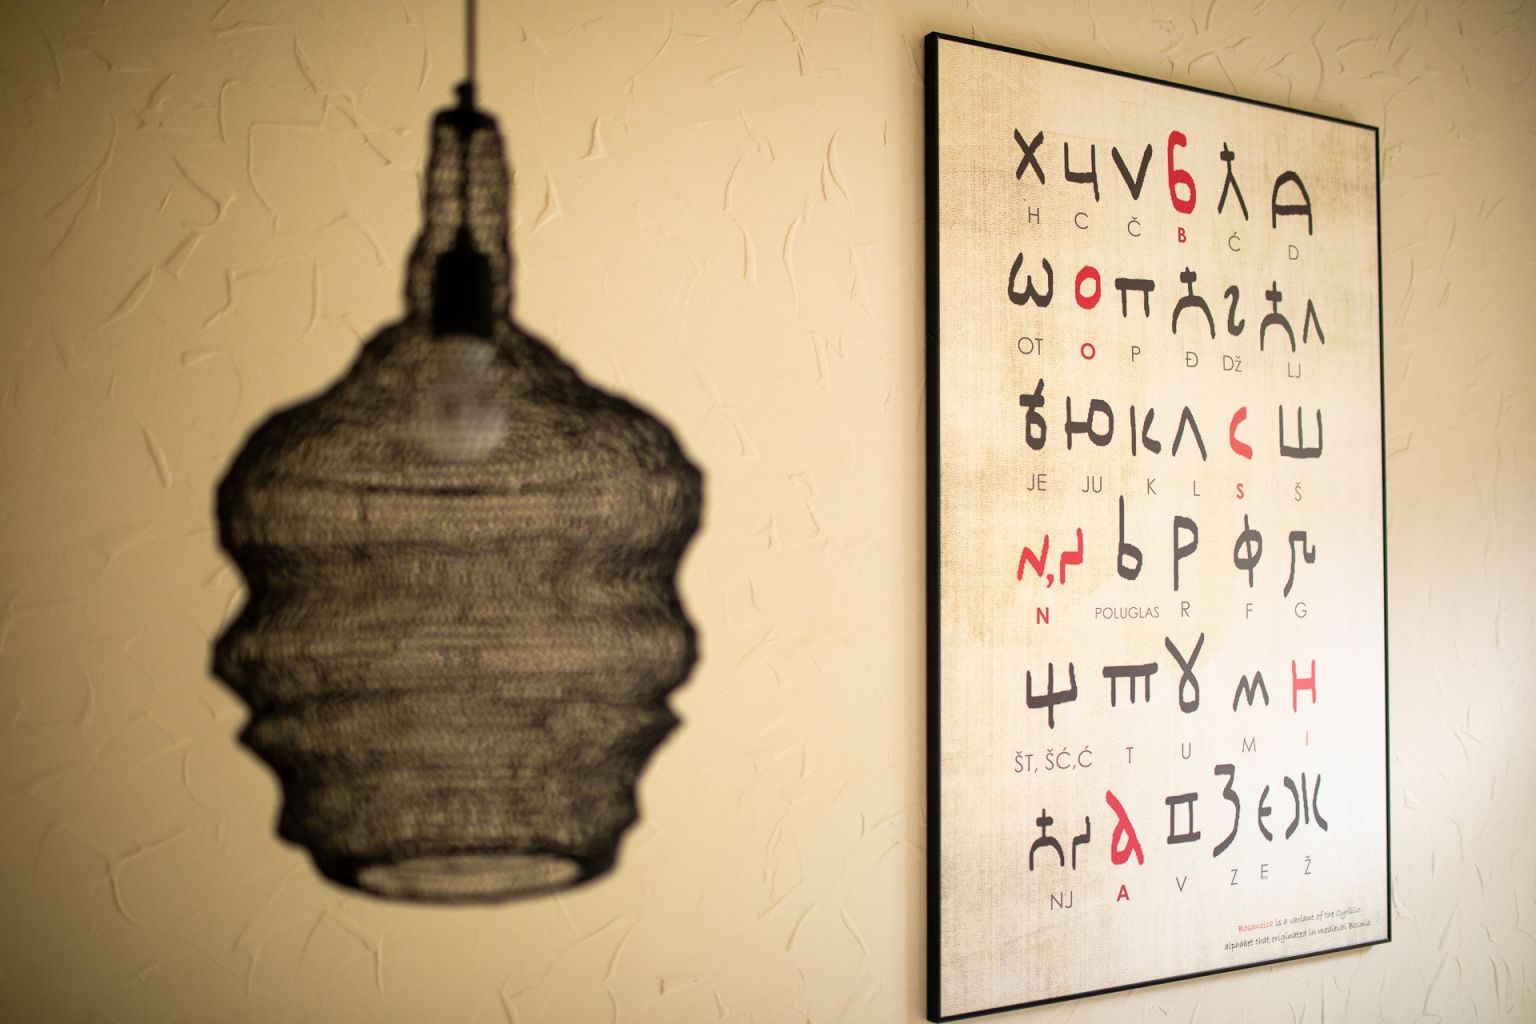 х ч v б ћ д
H C Č B Ć D
ѡ о п ћ ꙅ ћ л
OT O P Đ DŽ LJ
ѣ ю к л с ш
JE JU K L S Š
N, ꙇ ь р ф г
N POLUGLAS R F G
щ т ȣ м н
ŠT, ŠĆ,Ć T U M I
ћ ꙇ а в з є ж
NJ A V Z E Ž
Bosancica is a variant of the Cyrillic
alphabet that originated in medieval Bosnia.